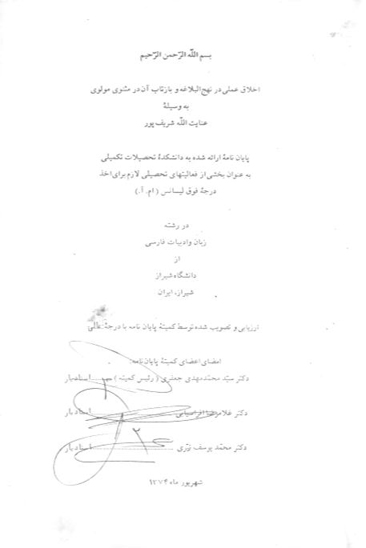 بسم الله الرحمن الرحیم
اخلاق عملی در نهج البلاغه و بازتاب آن در مثنوی مولوی
به وسیلهٔ
عنایت الله شریف پور
پایان نامهٔ ارائه شده به دانشکدهٔ تحصیلات تکمیلی
به عنوان بخشی از فعالیتهای تحصیلی لازم برای اخذ
درجهٔ فوق لیسانس (ام. آ.)
در رشته
زبان و ادبیات فارسی
از
دانشگاه شیراز
شیراز، ایران
ارزیابی و تصویب شده توسط کمیتهٔ پایان نامه با درجهٔ: عالی
امضای اعضای کمیتهٔ پایان نامه:
دکتر سید محمدمهدی جعفری (رئیس کمیته) استادیار
دکتر غلامرضا افراسیابی استادیار
دکتر محمد یوسف نیری استادیار
شهریور ماه ۱۳۷۴